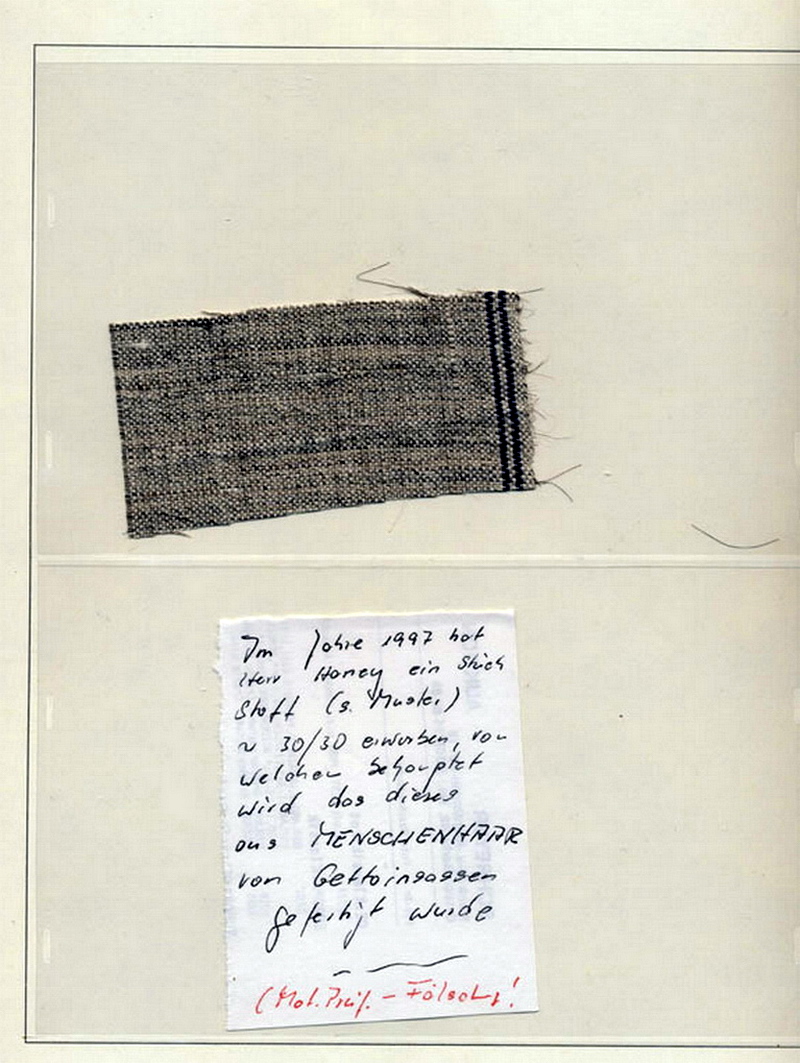 Im Jahre 1997 hat
Herr Haney ein Stück
Stoff (s. Muster)
~ 30/30 erworben, von
welchen behauptet
wird das dieses
aus MENSCHENHAAR
von Gettoinsassen
gefertigt wurde
(Mat. Prüf. - Falsch!